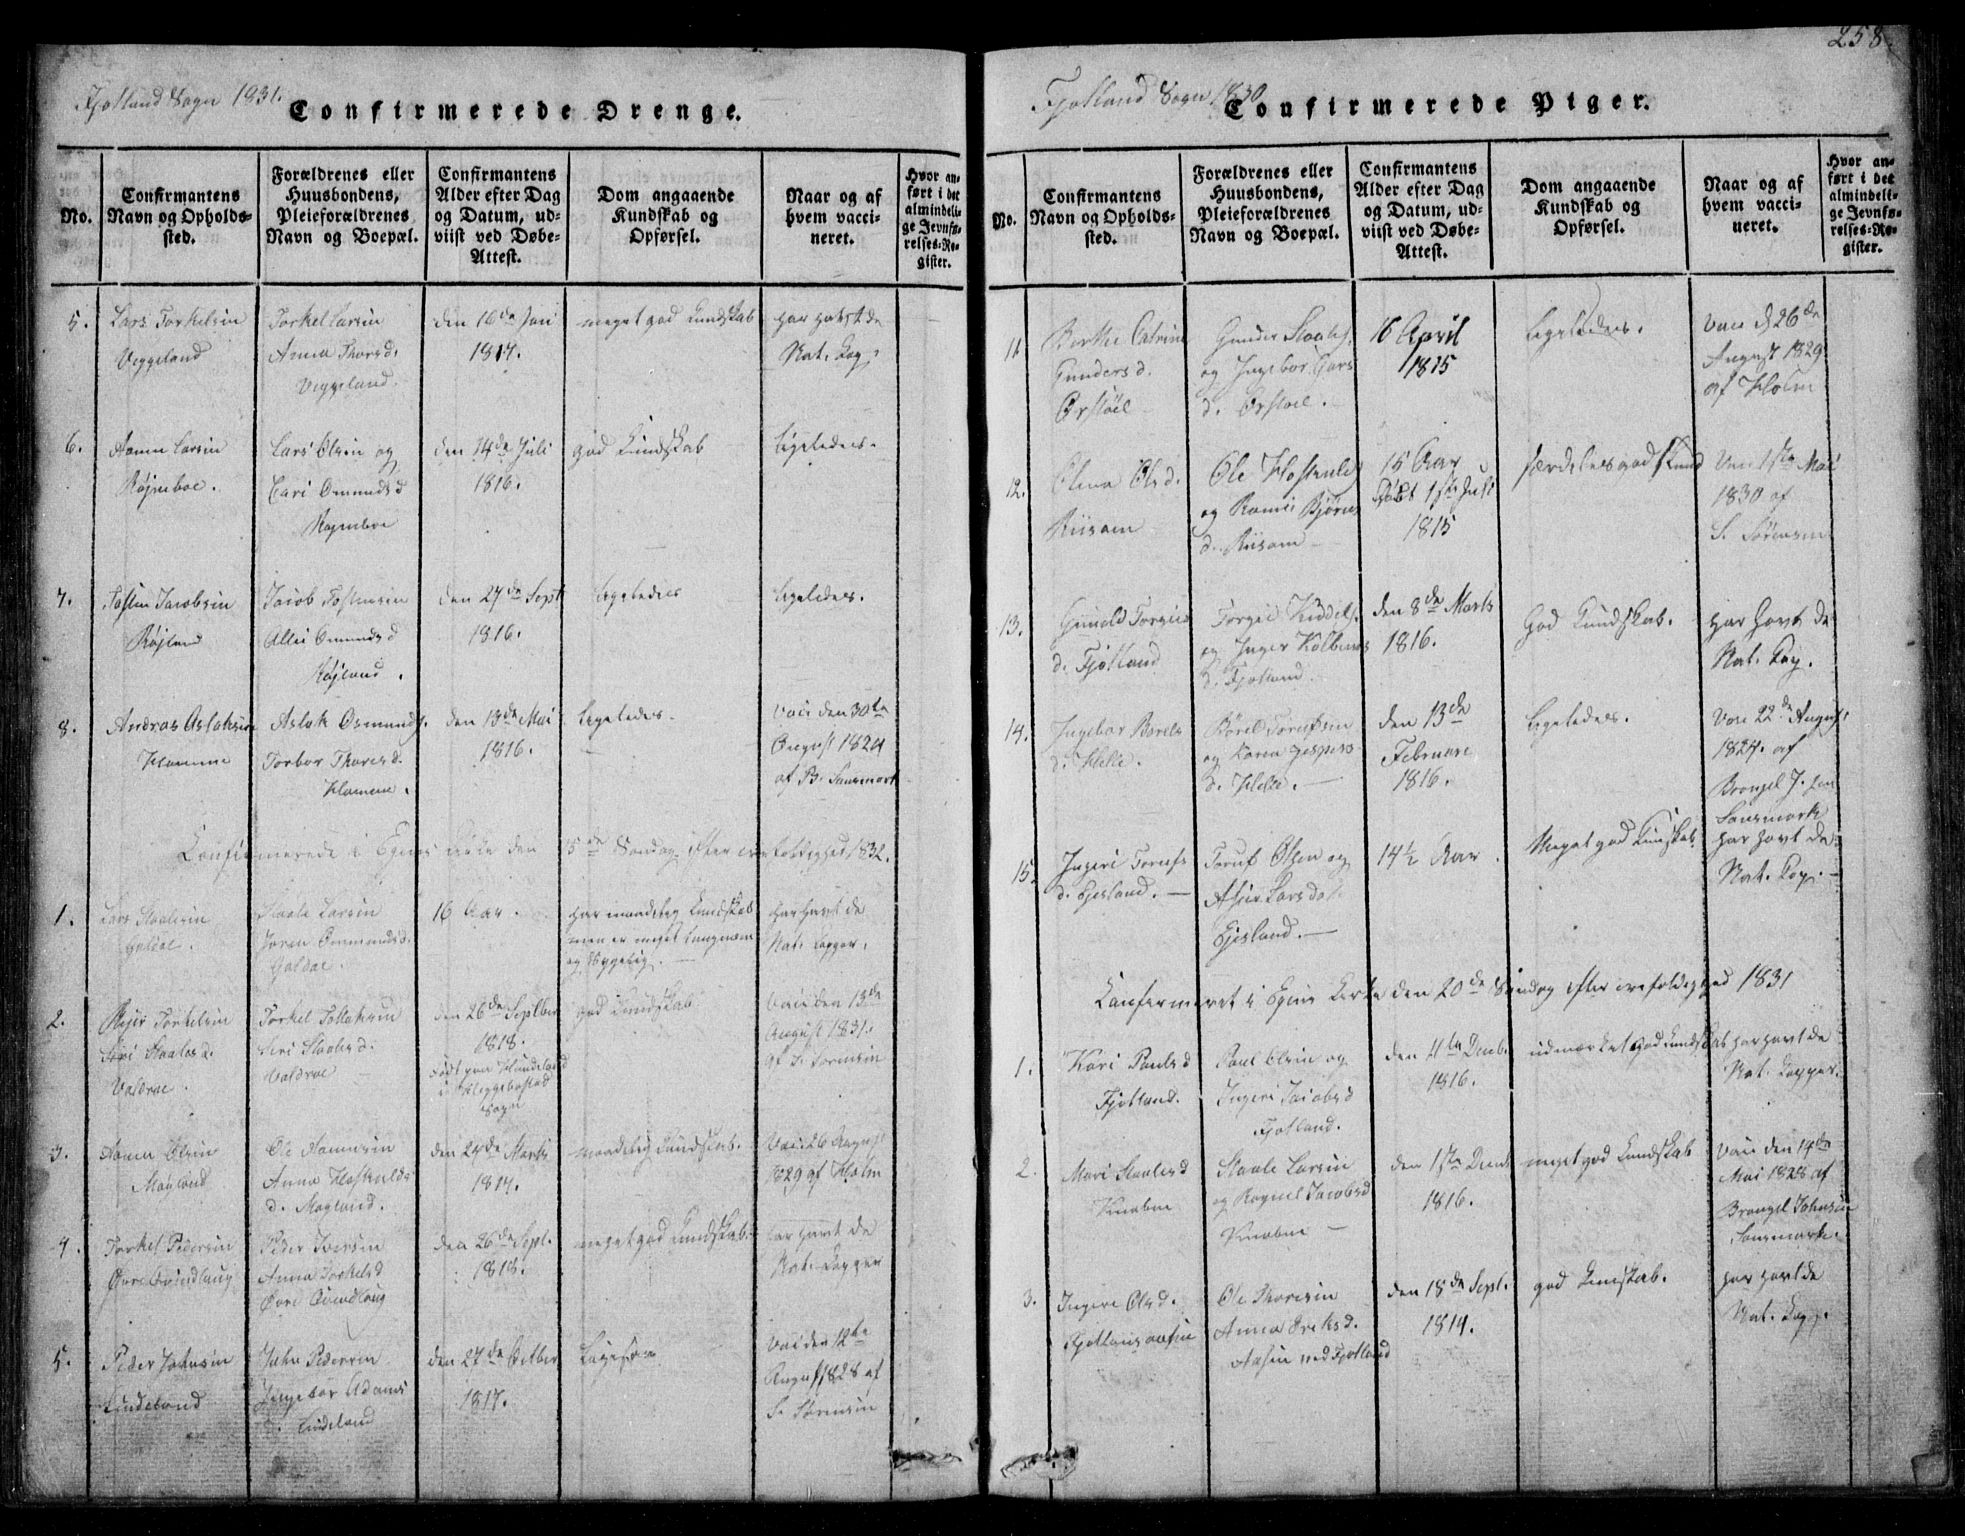 258.
Fjotland Sogn 1831.
Confirmerede Drenge.
No.
Confirmantens Navn og Opholds-sted.
Forældrenes eller Huusbondens, Pleieforældrenes Navn og Boepæl.
Confirmantens Alder efter Dag og Datum, ud-viist ved Døbe-Attest.
Dom angaaende Kundskab og Opførsel.
Naar og af hvem vacci-neret.
Hvor an-ført i det almindeli-ge Jevnfø-relses-Re-gister.
5.
Lars Torkelsen
Veggeland
Torkel Larsen
Anna Thorsd.
Veggeland.
den 16de Juni
1817.
meget god Kundskab
har havt de
Nat. Kop.
6.
Aanen Larsen
Røjneboe.
Lars Olsen og
Cari Omundsd
Røjneboe
den 14de Juli
1816.
god Kundskab
Ligeledes.
7.
Tosten Jacobsen
Røjland
Jacob Tostensen
Allis Omundsd
Røjland.
den 27de Sept
1816.
Ligeledes
Ligeledes.
8.
Andreas Aslaksen
Homme
Aslak Osmunds.
Torbor Thoresd.
Homme.
den 13de Mai
1816.
Ligeledes.
Vacc den 30te
August 1824
af B. Sansmark
Confirmerede i Egnes Kirke den 15de Søndag efter trefoldighed 1832.
1.
Lars Staalesen
Galdal.
Staale Larsen
Joren Ommundsd.
Galdal.
16 Aar.
har maadelig Kundskab
men er meget langnæm
og Sygelig.
har havt de
Nat. Kopper.
2.
Rejer Torkelsen
Siri Staalesd.
Valdrae.
Torkel Tollaksen
Siri Staalesd.
Valdrae
den 26de Septber
1818.
Født paa
i Heggebostad
Sogn
god Kundskab
Vacc den 13de
August 1831.
af S. Sørensen
3.
Aanen Olsen
Mogland
Ole Aanensen
Anna Hoskulds
d. Mogland.
den 24de Marts
1817.
maadelig Kundskab.
Vacc 26 August
1829 af Holm
4.
Torkel Pedersen
Øvre Qvindlaug
Peder Iversen
Anna Torkelsd
Øvre Qvindlaug
den 26de Sept.
1818.
meget god Kundskab.
har havt de
Nat. Kopper
5.
Peder Johnsen
Lindeland
John Pedersen
Ingebor Adams
d. Lindeland
den 27de Octber
1817.
Ligesaa
Vac den 12te
August 1828 af
S. Sørensen
Fjotland Sogn 1830
Confirmerede Piger.
No.
Confirmantens Navn og Opholds-sted.
Forældrenes eller Huusbondens, Pleieforældrenes Navn og Boepæl.
Confirmantens Alder efter Dag og Datum, ud-viist ved Døbe-Attest.
Dom angaaende Kundskab og Opførsel.
Naar og af hvem vacci-neret.
Hvor an-ført i det almindeli-ge Jevnfø-relses-Re-gister.
11
Berthe Catrine
Gunders d.
Ørstøel
Gunder Staales.
og Ingebor Lars
d. Ørstøel.
16 April
1815
Ligeledes.
Vacc d 26de
August 1829
af Holm
12.
Elena Olsd.
Riisom
Ole Hoskulds.
og Rannei Bjørns
d. Riisom
15 Aar
Født 1ste Juli
1815
særdeles god Kund
Vacc 1ste Mai
1830 af
S. Sørensen
13.
Gunvold Torgies
d. Fjotland
Torgie Kiddels.
og Inger Kolbens
d. Fjotland.
den 8de Marts
1816.
God Kundskab.
har havt de
Nat. Kop.
14.
Ingebor Borels
d. Helle.
Børel Torufsen
og Karen Jespers
d. Helle.
den 13de
Februari
1816.
Ligeledes.
Vacc 22de August
1824. af
Brongel J. sen
Sansmark
15.
Ingeri Torufs
d. Ejesland.
Toruf Olsen og
Asjer Larsdat.
Ejesland.
14½ Aar.
Meget god Kundskab
har havt de
Nat. Kop.
Confirmeret i Egnes Kirke den 20de Søndag efter trefoldighed 1831
1.
Kari Paulsd
Fjotland.
Paul Olsen og
Ingeri Jacobsd
Fjotland.
den 4de Decnb.
1816.
udmærket god Kundskab
har havt de
Nat. Kopper.
2.
Mari Staalesd
Knaben
Staale Larsen
og Ragnel Jacobsd
Knaben
den 1ste Decnb
1816.
meget god Kundskab
Vacc den 14de
Mai 1828 af
Brongel Johnsen
Sansmark.
3.
Ingeri Olsd.
Fjotlansaasen
Ole Thoresen
Anna Eriksd.
Aasen ved Fjotland
den 18de Sept.
1814.
god Kundskab.
har havt de
Nat. Kop.